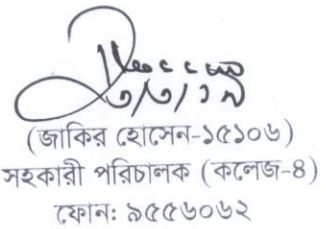 ৩/৩/১৯
(জাকির হোসেন-১৫১০৬)
সহকারী পরিচালক (কলেজ-৪)
ফোন: ৯৫৫৬০৬২